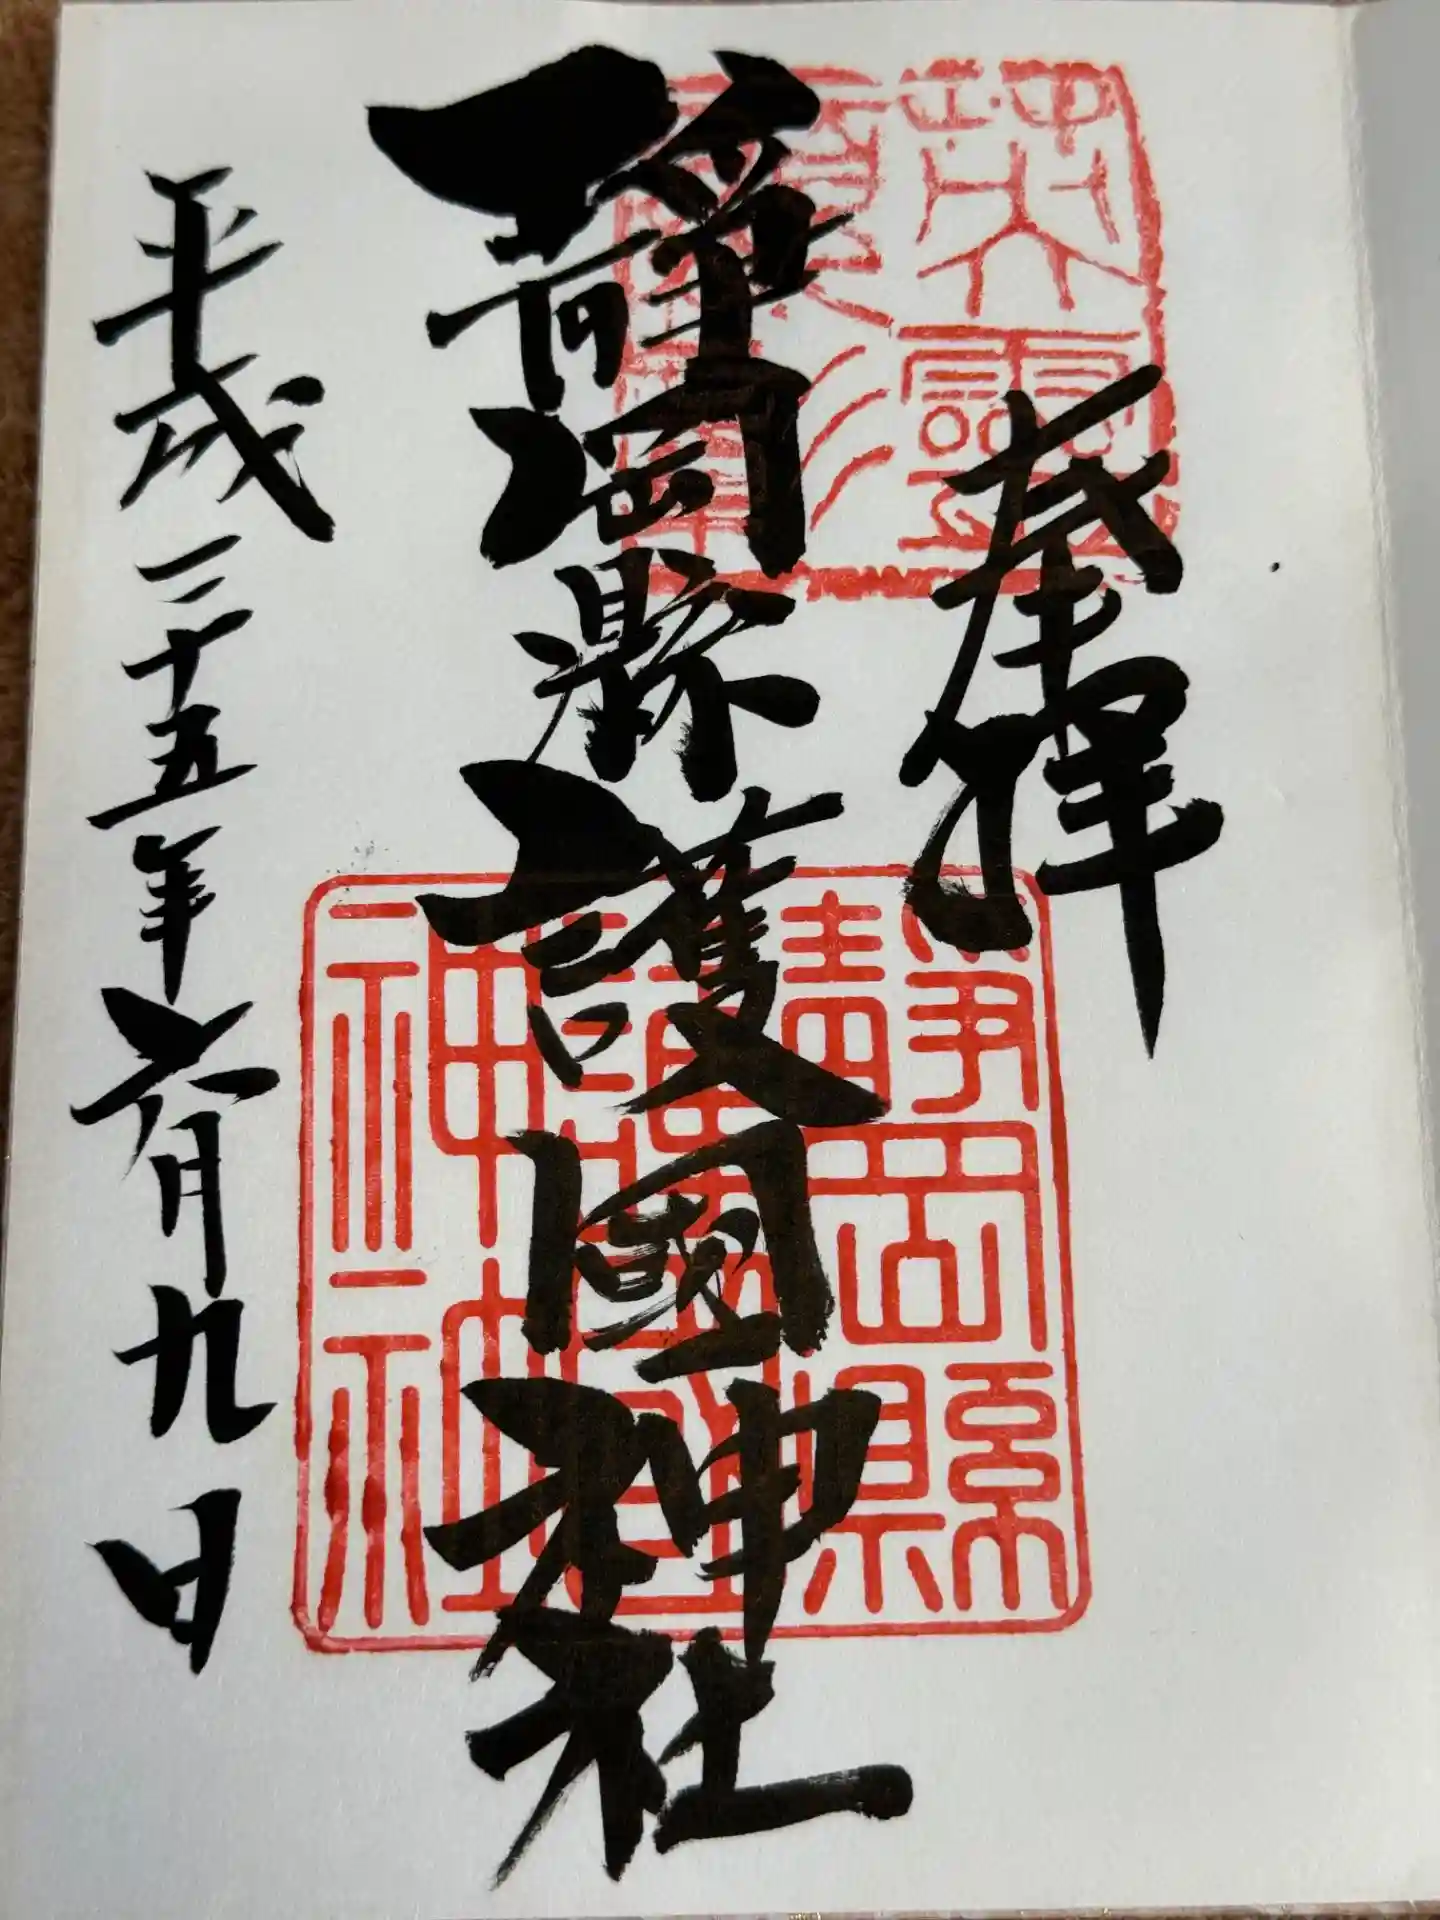 奉拝
英靈
顯彰
靜岡縣護國神社
靜岡縣
護國
神社
平成二十五年六月九日